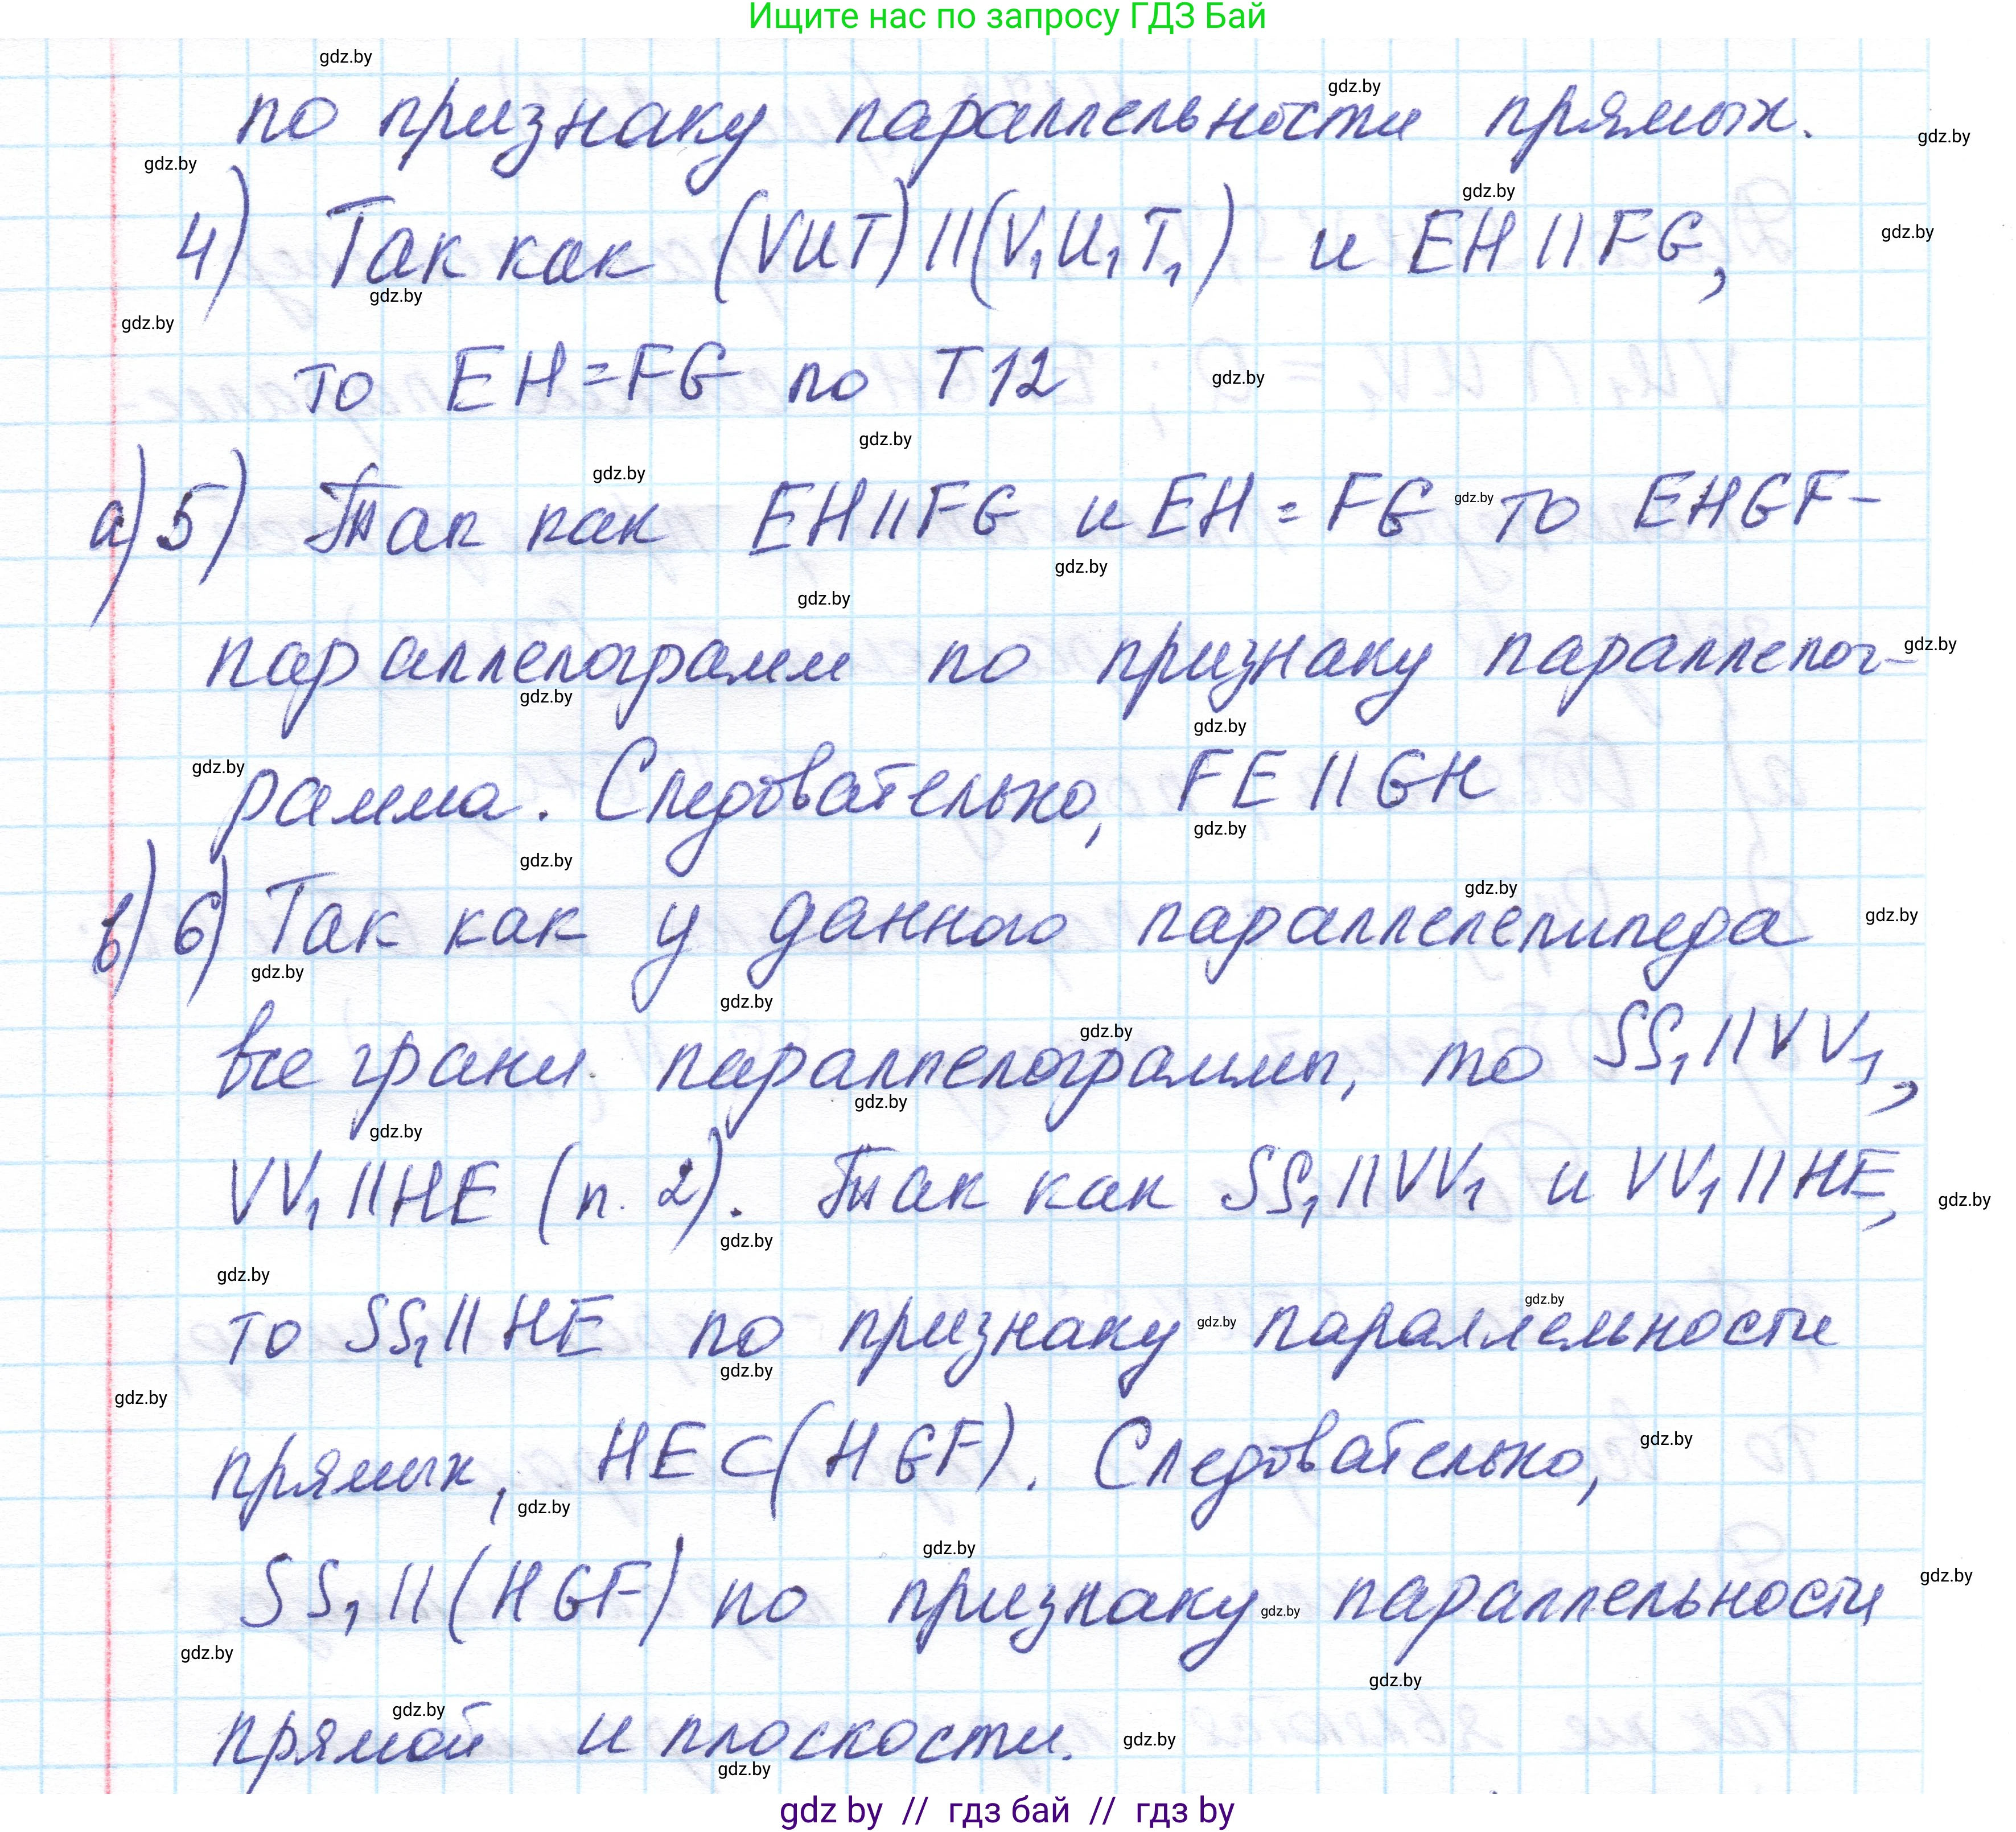 Ищите нас по запросу ГДЗ Бай
по признаку параллельности прямых.
4) Так как (VUT)||(V₁U₁T₁) и EH||FG,
то EH=FG по Т12
а) 5) Так как EH||FG и EH=FG то EHGF-
параллелограмм по признаку параллелог-
рамма. Следовательно, FE||GH
в) 6) Так как у данного параллелепипеда
все грани параллелограммы, то SS₁||VV₁,
VV₁||HE (п. 2). Так как SS₁||VV₁ и VV₁||HE,
то SS₁||HE по признаку параллельности
прямых, HE⊂(HGF). Следовательно,
SS₁||(HGF) по признаку параллельности
прямой и плоскости.
gdz by // гдз бай // гдз by